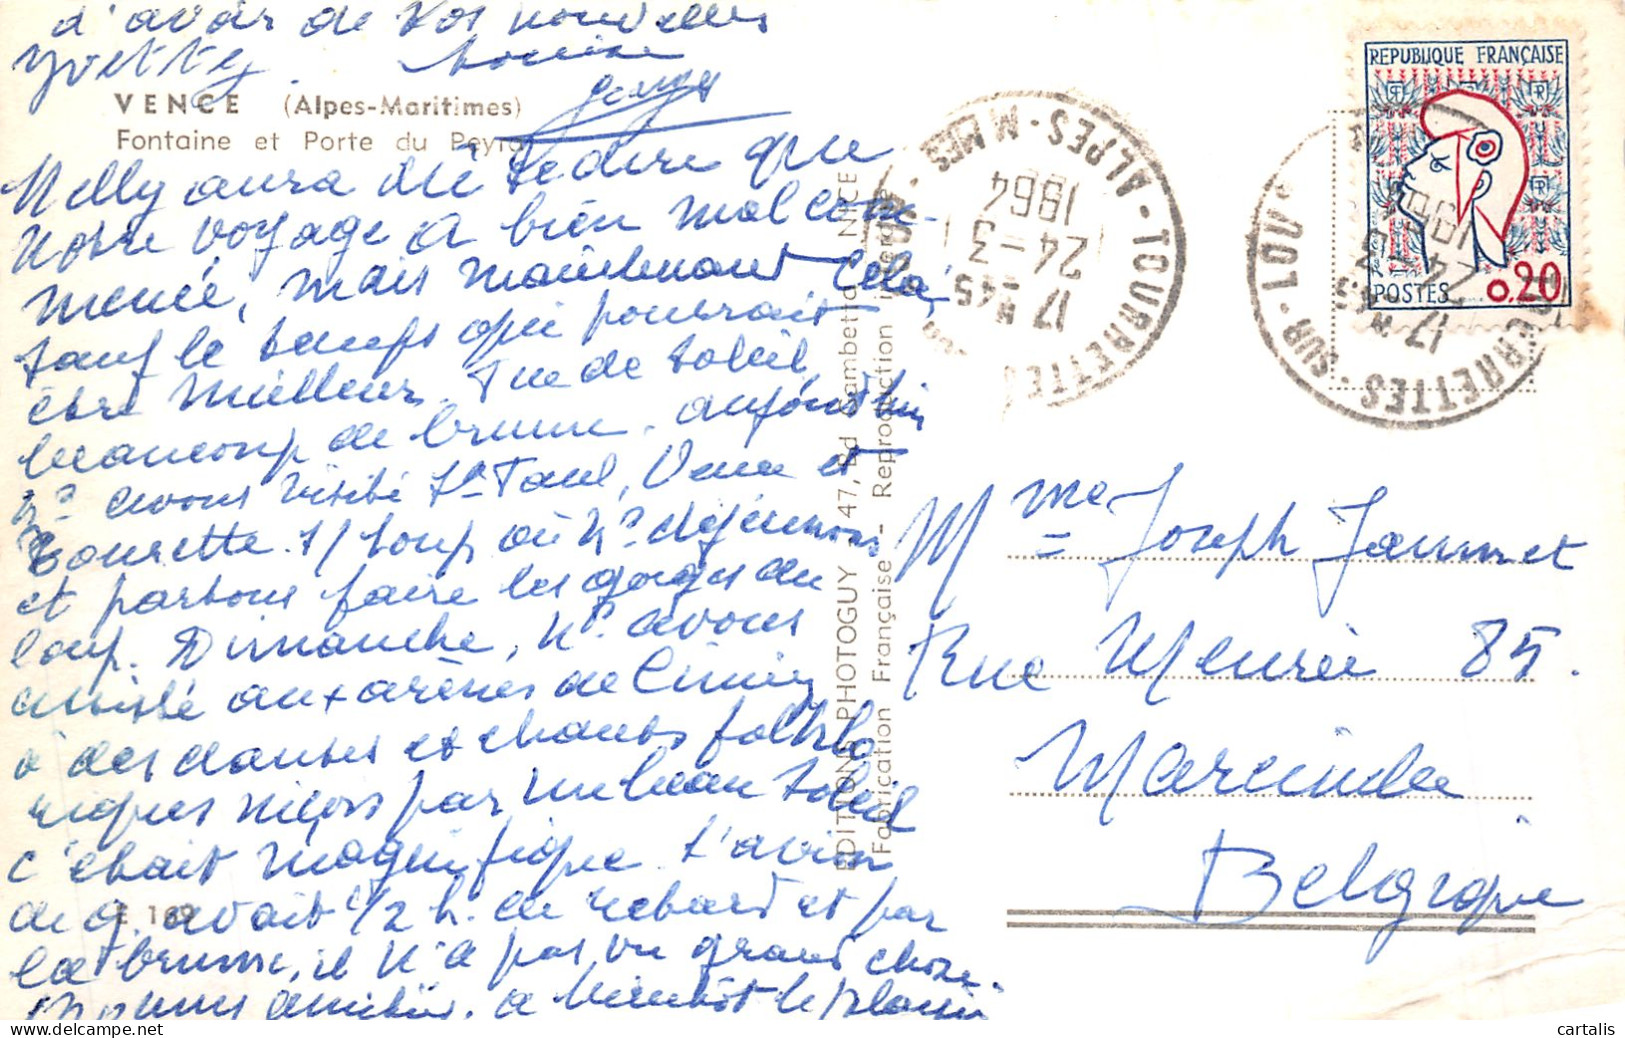 d'avoir de vos nouvelles
Yvette. Louise
Georges
VENCE (Alpes-Maritimes)
Fontaine et Porte du Peyra
Nelly aura dû te dire que
notre voyage a bien mal com-
mencé, mais maintenant cela va
sauf le temps qui pourrait
être meilleur. Peu de soleil,
beaucoup de brume. aujourd'hui
ns. avons visité St Paul, Vence et
Tourette s/ Loup où ns. déjeunons
et partons faire les gorges du
loup. Dimanche, ns. avons
assisté aux arènes de Cimiez
à des danses et chants folklo
riques niçois par un beau soleil
c'était magnifique. L'avion
de G. avait 1/2 h. de retard et par
la brume, il n'a pas vu grand chose.
Bonnes amitiés. à bientôt le plaisir
E 169
EDITIONS PHOTOGUY - 47, Bd Gambetta - NICE
Fabrication Française - Reproduction interdite
TOURRETTES-SUR-LOUP
ALPES-MMES
17 H 45
24 - 3
1964
REPUBLIQUE FRANÇAISE
POSTES 0,20
TOURRETTES-SUR-LOUP
17 H 45
24 - 3
1964
Mme Joseph Jaumet
Rue Meurée 85.
Marcinelle
Belgique
cartalis